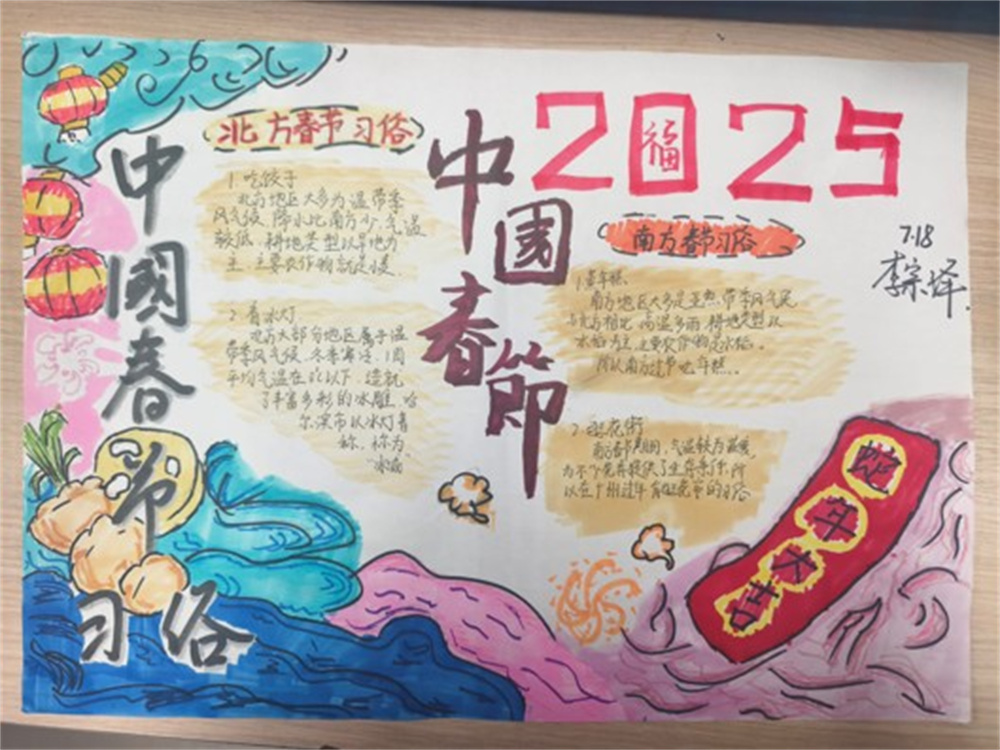 中國春节习俗
北方春节习俗
1. 吃饺子
北方地区大多为温带季
风气候,降水比南方少,气温
较低,耕地类型以旱地为
主,主要农作物就是
2. 看冰灯
北方大部分地区属于温
带季风气候,冬季寒冷,1月
平均气温在0℃以下,造就
了丰富多彩的冰雕,哈
尔滨市以冰灯著
称,称为
冰城
中国春節
2025
福
南方春节习俗
7.18
李宗烨
南方地区大多是亚热带季风气候
与北方相比,高温多雨,耕地类型以
水稻为主,主要农作物是水稻。
所以南方过节吃年糕...
2. 逛花街
南方春节期间,气温较为温暖,
为不少花卉提供了生存条件,所
以在广州过年有逛花街的习俗
蛇年大吉